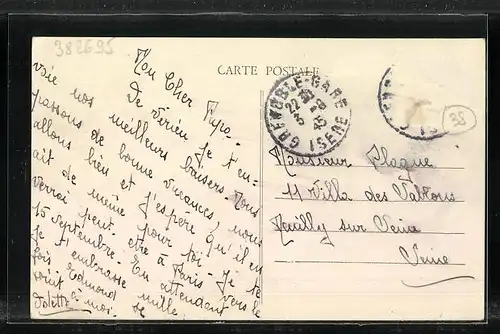 382695
CARTE POSTALE
Mon Cher Papa.
De Virieu je t'en-
voie nos meilleurs baisers. Nous
passons de bonne vacances, nous
allons bien et j'espère qu'il en
ait de même pour toi. Je te
verrai peut-être à Paris vers le
15 septembre. En attendant
je t'embrasse mille
fois Edmond se
à moi.
GRENOBLE-GARE
ISERE
38
Monsieur Plaque
11 Villa des Sablons
Neuilly sur Seine
Seine